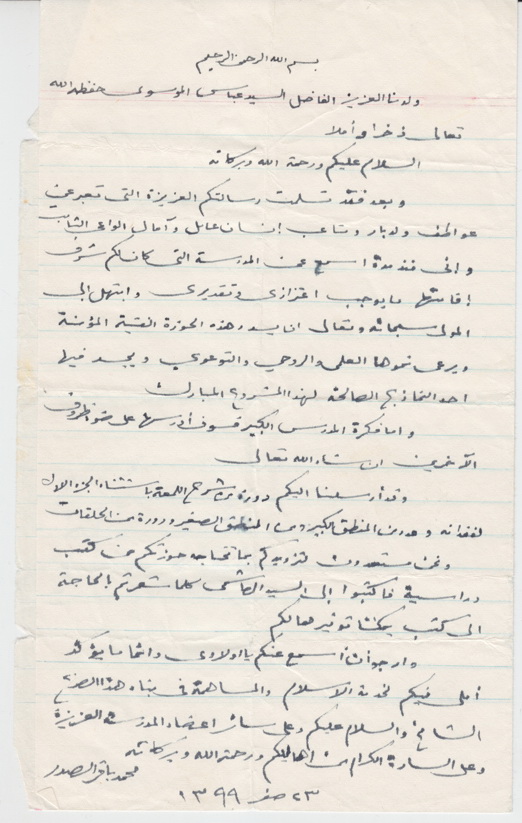 بسم الله الرحمن الرحيم
ولدنا العزيز الفاضل السيد عباس الموسوي حفظه الله
تعالى ذخرا وأملا
السلام عليكم ورحمة الله وبركاته
وبعد فقد تسلمت رسالتكم العزيزة التي تعبر عن
عواطف ولد بار ومتاعب إنسان عامل وآمال الواعي الشاب
وإني منذ مدة أسمع عن المدرسة التي كان لكم شرف
إقامتها ما يوجب اعتزازي وتقديري وابتهل إلى
المولى سبحانه وتعالى ان يسدد هذه الحوزة الفتية المؤمنة
ويرعى نموها العلمي والروحي والتوعوي ويجسد فيها
احد النماذج الصالحة لهذا المشروع المبارك
واما فكرة المدرس الكبير فسوف أدرسها على ضوء ظروف
الآخرين ان شاء الله تعالى
وقد أرسلنا اليكم دورة من شرح اللمعة باستثناء الجزء الاول
لفقدانه و من المنطق الكبير ومن المنطق الصغير ودورة من الحلقات
ونحن مستعدون لتزويدكم بما تحتاجه حوزتكم من كتب
دراسية فاكتبوا إلى السيد كلما شعرتم بالحاجة
الى كتب يمكننا توفيرها لكم
وارجو أن أسمع عنكم يا اولادي دائما ما يؤكد
أملي فيكم لخدمة الاسلام والمساهمة في بناء هذا الصرح
الشامخ والسلام عليكم وعلى سائر اعضاء المدرسة العزيزة
وعلى السادة الكرام من اهاليكم ورحمة الله وبركاته
محمد باقر الصدر
٢٣ صفر ١٣٩٩